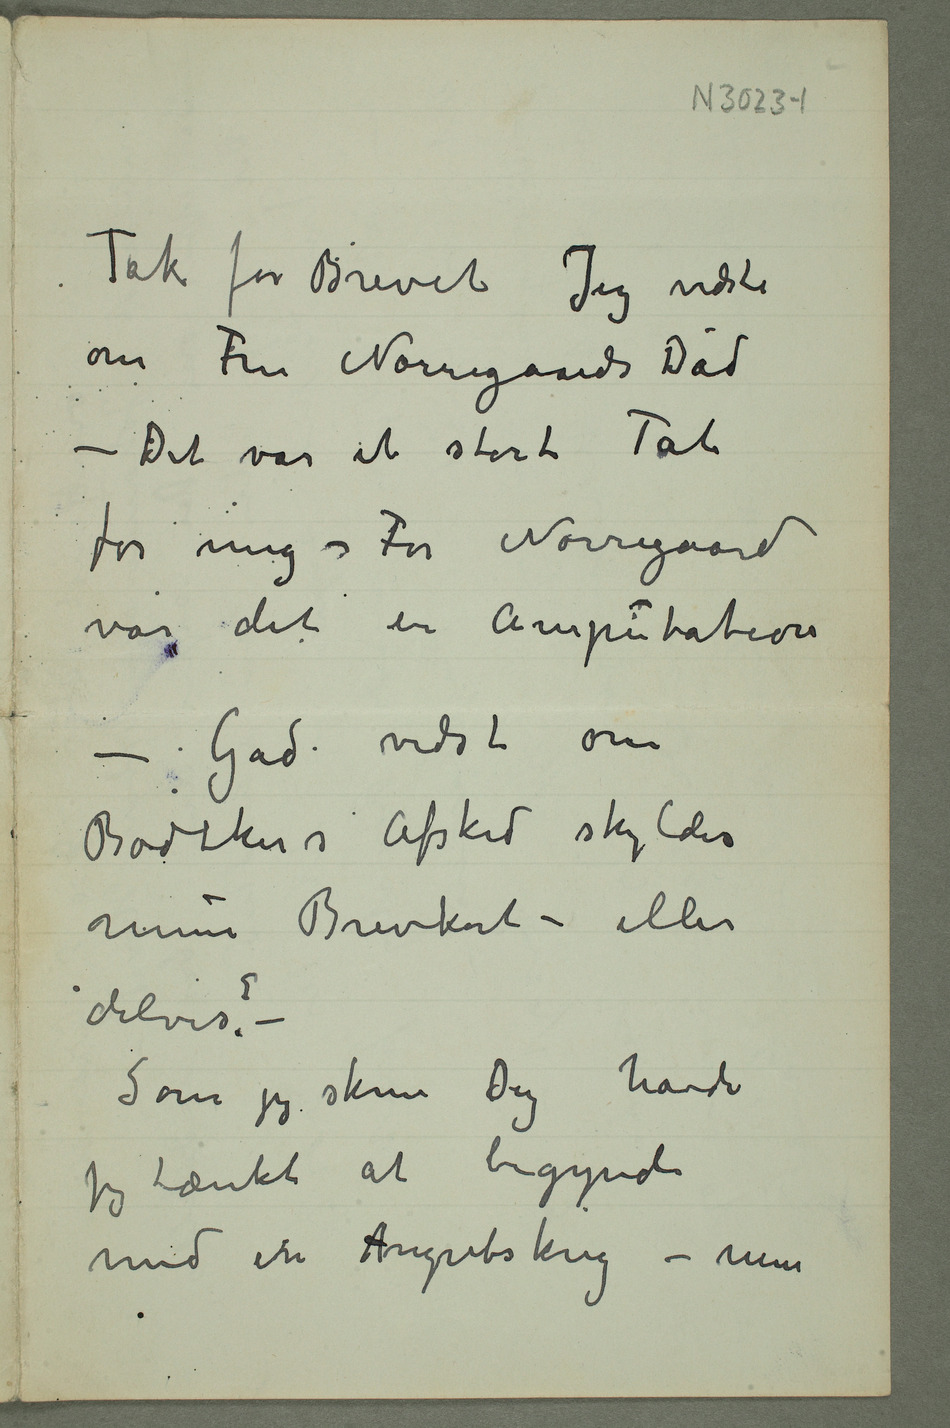 N3023-1
Tak for Brevet Jeg vidste
om Fru Nørregaards Död
– Det var et stort Tab
for mig – For Nørregaard
var det en Amputation
– Gad vidst om
Bødtkers Afsked skyldes
mine Brevkort – eller
delvis? –
Som jeg skrev Dig havde
jeg tænkt at begynde
med en Angrebskrig – men